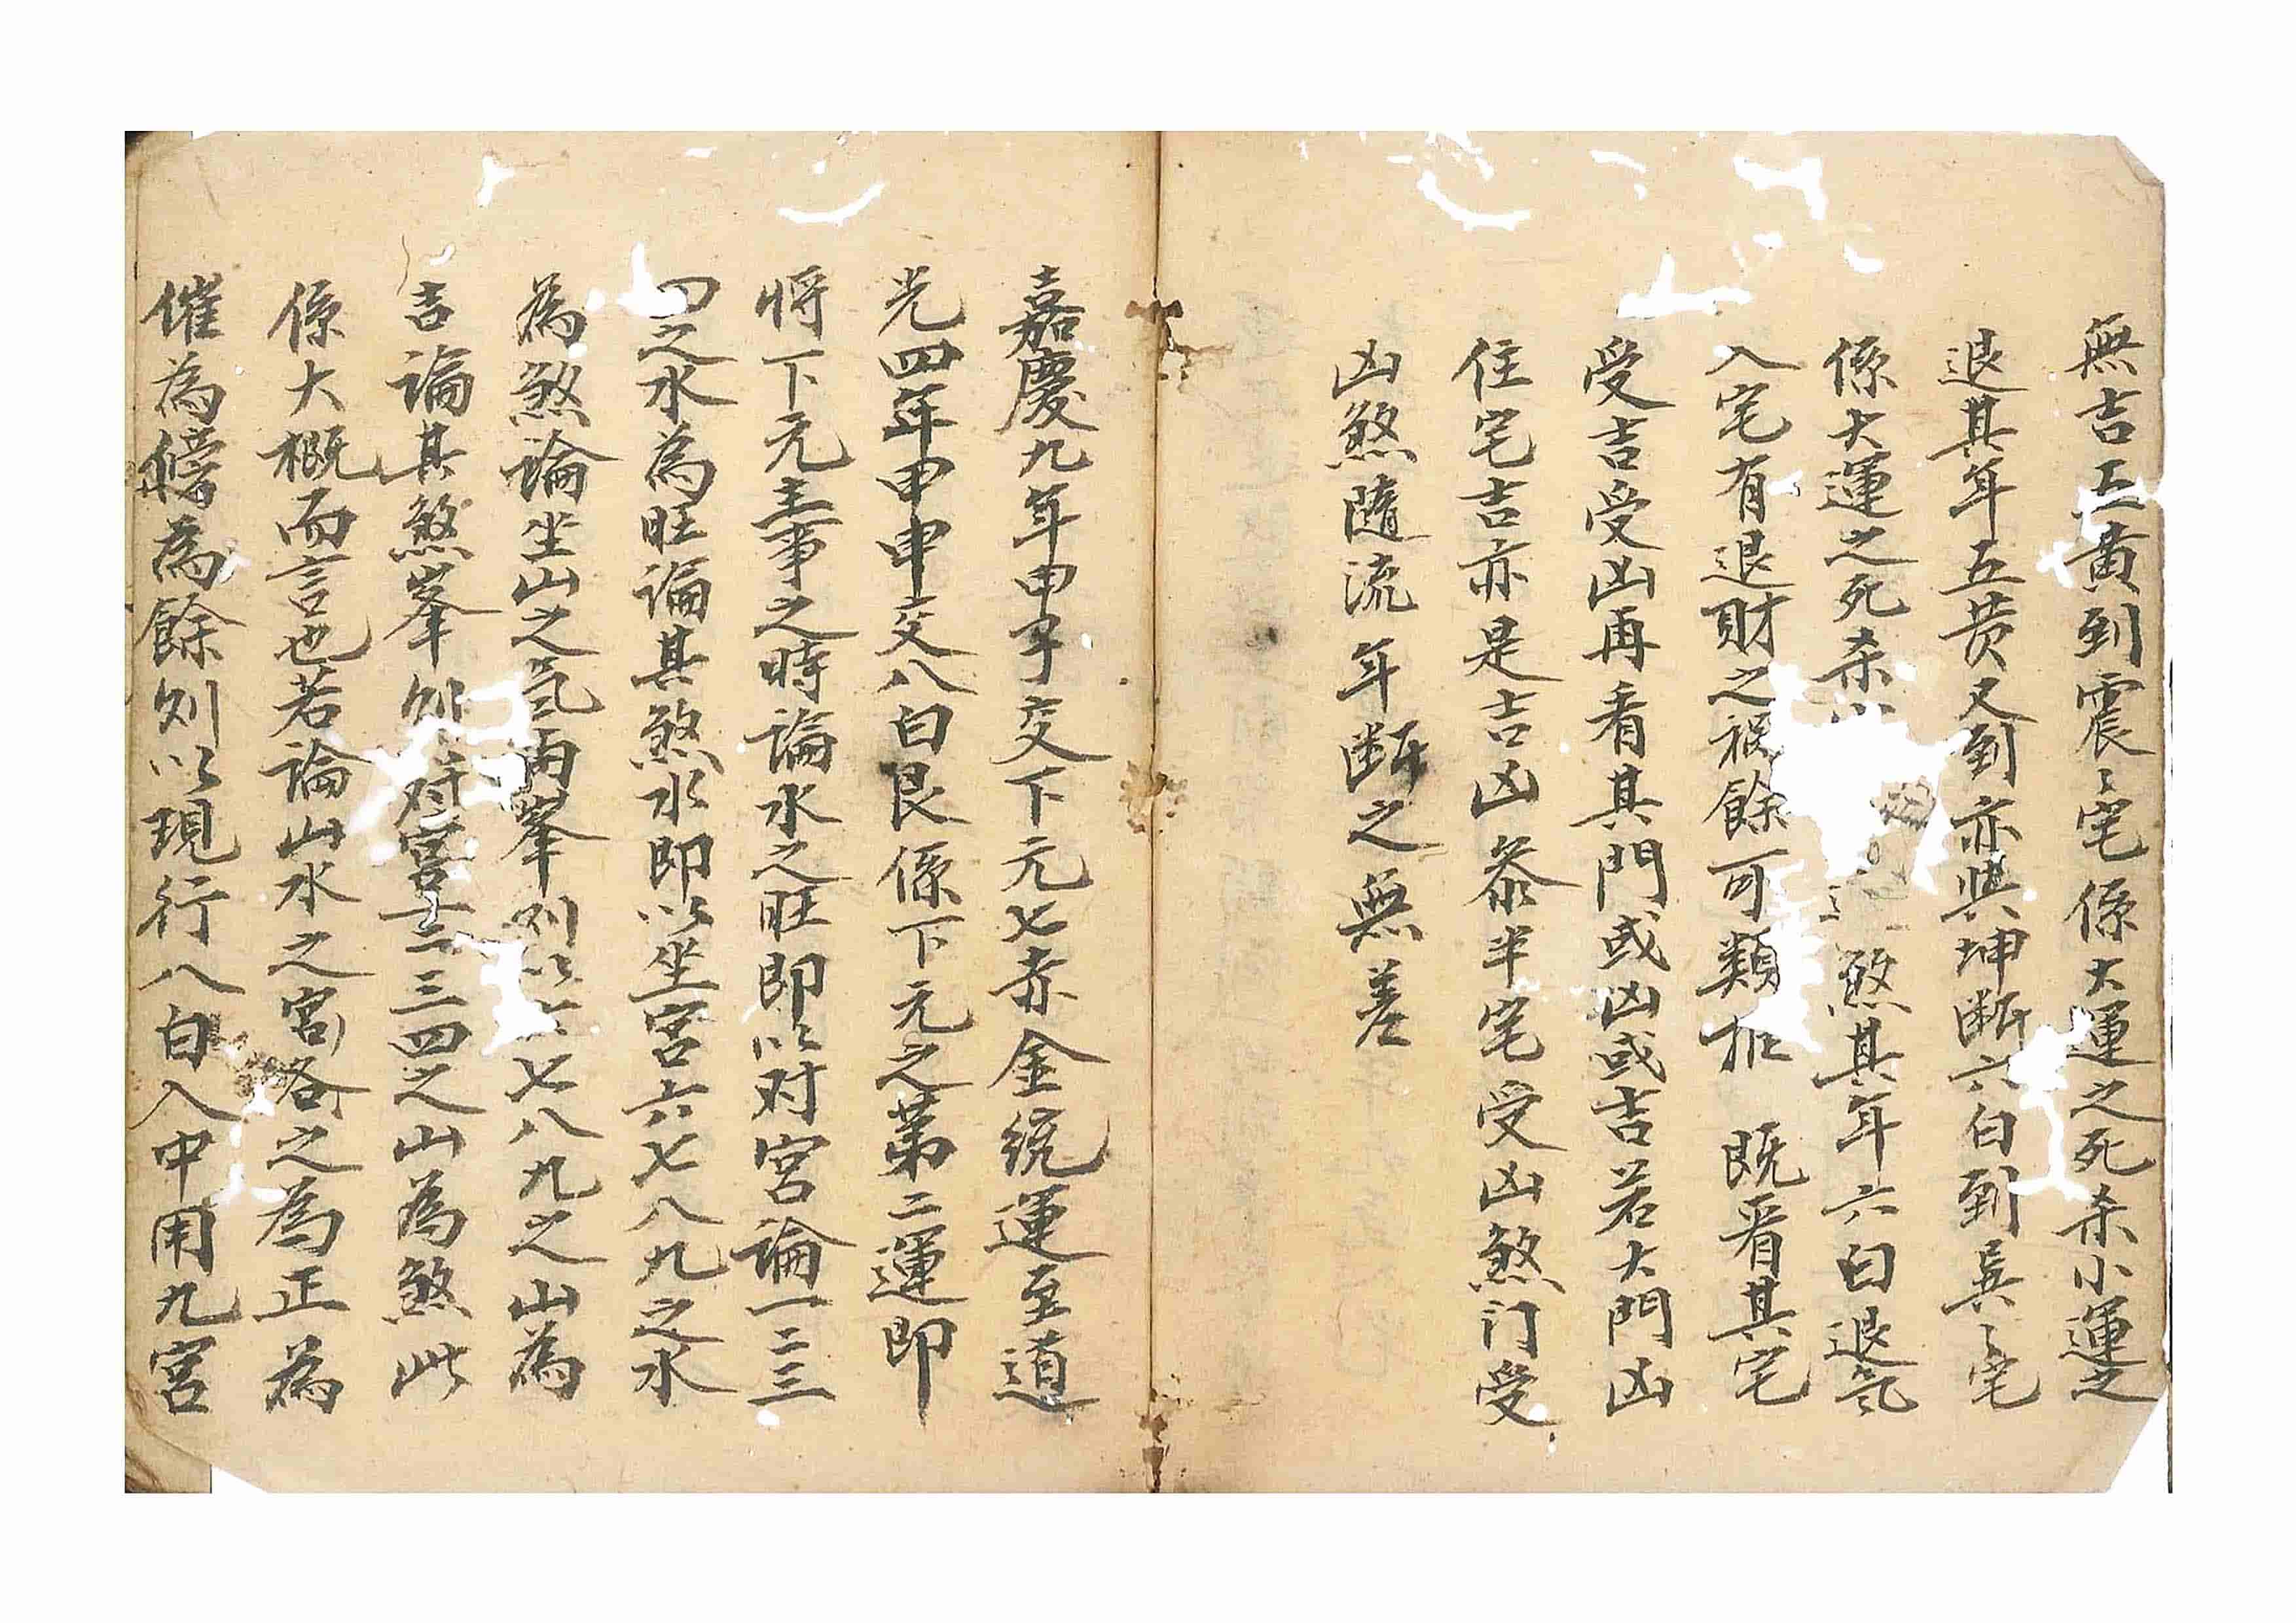 無吉五黃到震〻宅係大運之死杀小運之
退其年五黄又到亦與坤断六白到巽〻宅
係大運之死杀小煞其年六白退氣
入宅有退財之禍餘可類推　既看其宅
受吉受凶再看其門或凶或吉若大門凶
住宅吉亦是吉凶叅半宅受凶煞门受
凶煞隨流年断之無差
嘉慶九年甲子交下元七赤金統運至道
光四年甲申交八白艮係下元之第二運即
将下元主事之時論水之旺即以对宮論一二三
四之水為旺論其煞水即以坐宮六七八九之水
為煞論坐山之氣两峯則以六七八九之山為
吉論其煞峯則对宮一二三四之山為煞此
係大概而言也若論山水之宮各之為正為
催為傍為餘則以現行八白入中用九宮